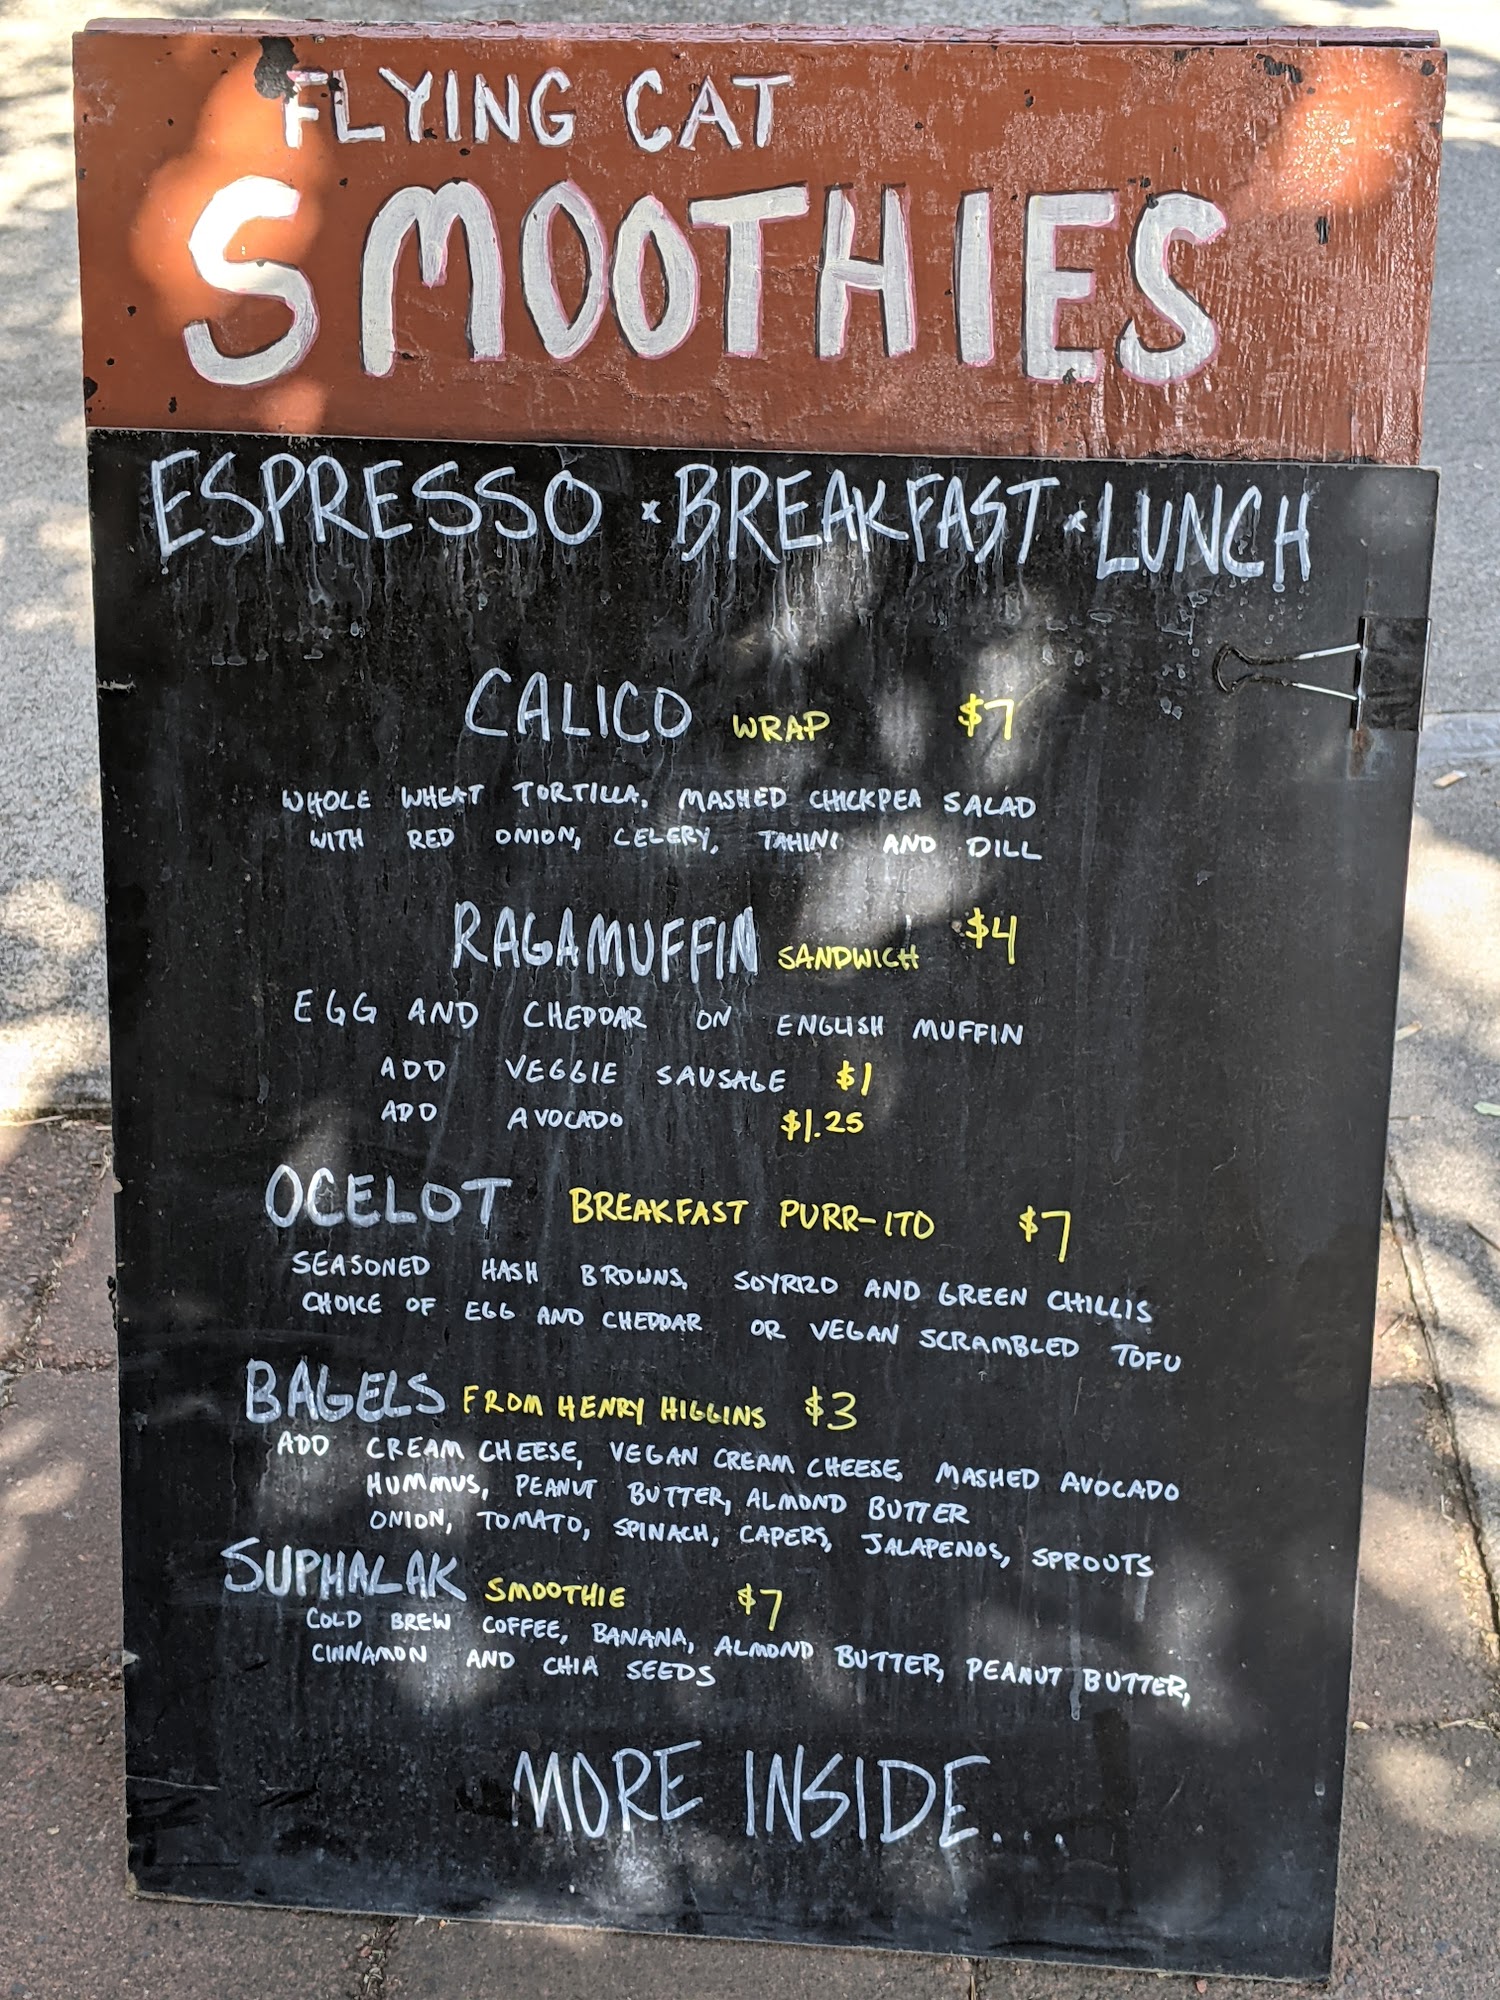 FLYING CAT
SMOOTHIES
ESPRESSO × BREAKFAST × LUNCH
CALICO WRAP $7
WHOLE WHEAT TORTILLA, MASHED CHICKPEA SALAD
WITH RED ONION, CELERY, TAHINI AND DILL
RAGAMUFFIN SANDWICH $4
EGG AND CHEDDAR ON ENGLISH MUFFIN
ADD VEGGIE SAUSAGE $1
ADD AVOCADO $1.25
OCELOT BREAKFAST PURR-ITO $7
SEASONED HASH BROWNS, SOYRIZO AND GREEN CHILLIS
CHOICE OF EGG AND CHEDDAR OR VEGAN SCRAMBLED TOFU
BAGELS FROM HENRY HIGGINS $3
ADD CREAM CHEESE, VEGAN CREAM CHEESE, MASHED AVOCADO
HUMMUS, PEANUT BUTTER, ALMOND BUTTER
ONION, TOMATO, SPINACH, CAPERS, JALAPENOS, SPROUTS
SUPHALAK SMOOTHIE $7
COLD BREW COFFEE, BANANA, ALMOND BUTTER, PEANUT BUTTER,
CINNAMON AND CHIA SEEDS
MORE INSIDE...